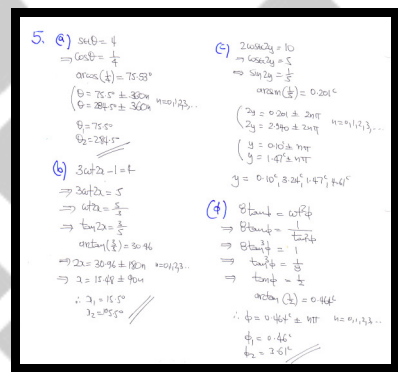 5. (a) secθ = 4
⇒ cosθ = 1/4
arccos(1/4) = 75.53°
(θ = 75.5° ± 360n
(θ = 284.5° ± 360n n=0,1,2,3,...
θ₁ = 75.5°
θ₂ = 284.5°
(b) 3cot2x - 1 = 4
⇒ 3cot2x = 5
⇒ cot2x = 5/3
⇒ tan2x = 3/5
arctan(3/5) = 30.96
⇒ 2x = 30.96 ± 180n n=0,1,2,3...
⇒ x = 15.48 ± 90n
∴ x₁ = 15.5°
x₂ = 105.5°
(c) 2cosec2y = 10
⇒ cosec2y = 5
⇒ sin2y = 1/5
arcsin(1/5) = 0.201ᶜ
(2y = 0.201 ± 2nπ
(2y = 2.940 ± 2nπ n=0,1,2,3,...
(y = 0.10ᶜ ± nπ
(y = 1.47ᶜ ± nπ
y = 0.10ᶜ, 3.24ᶜ, 1.47ᶜ, 4.61ᶜ
(d) 8tanϕ = cot²ϕ
⇒ 8tanϕ = 1/tan²ϕ
⇒ 8tan³ϕ = 1
⇒ tan³ϕ = 1/8
⇒ tanϕ = 1/2
arctan(1/2) = 0.464ᶜ
∴ ϕ = 0.464ᶜ ± nπ n=0,1,2,3...
ϕ₁ = 0.46ᶜ
ϕ₂ = 3.61ᶜ